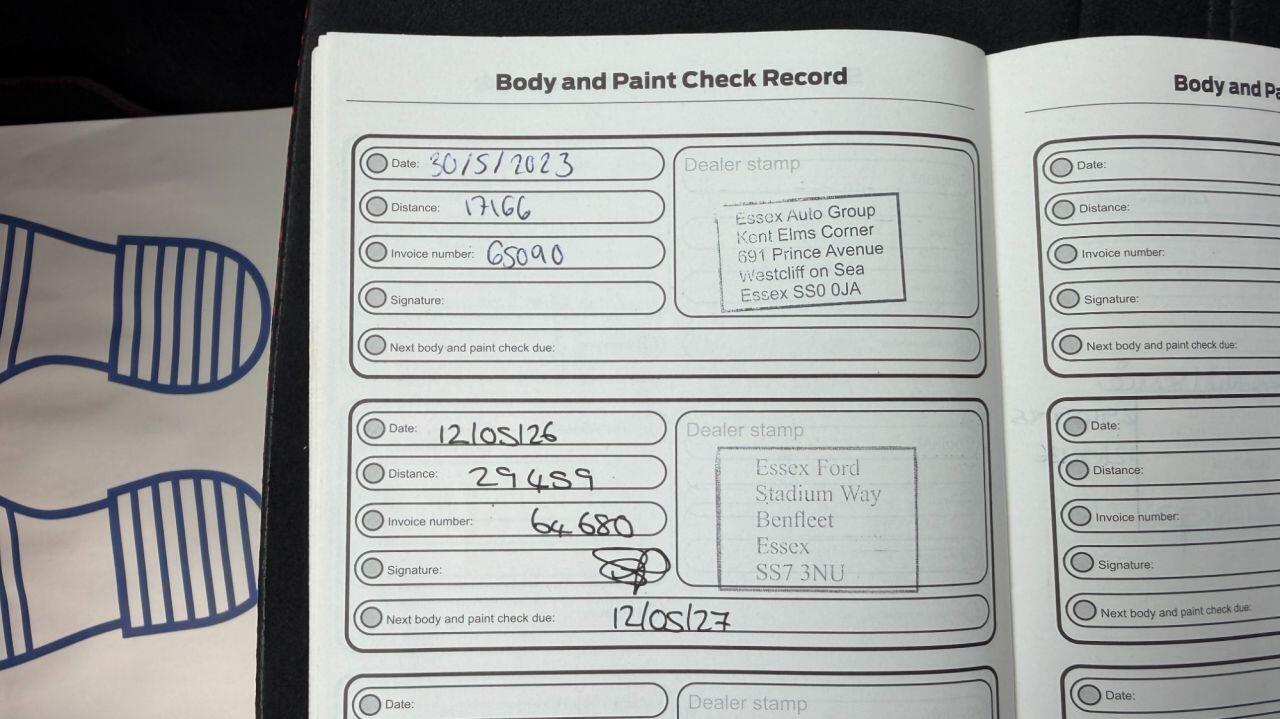 Body and Paint Check Record
Date: 30/5/2023
Distance: 17166
Invoice number: 65090
Signature:
Next body and paint check due:
Dealer stamp
Essex Auto Group
Kent Elms Corner
691 Prince Avenue
Westcliff on Sea
Essex SS0 0JA
Date: 12/05/26
Distance: 29459
Invoice number: 64680
Signature:
Next body and paint check due: 12/05/27
Dealer stamp
Essex Ford
Stadium Way
Benfleet
Essex
SS7 3NU
Date:
Dealer stamp
Body and Pa
Date:
Distance:
Invoice number:
Signature:
Next body and paint check due:
Date:
Distance:
Invoice number:
Signature:
Next body and paint check due:
Date: